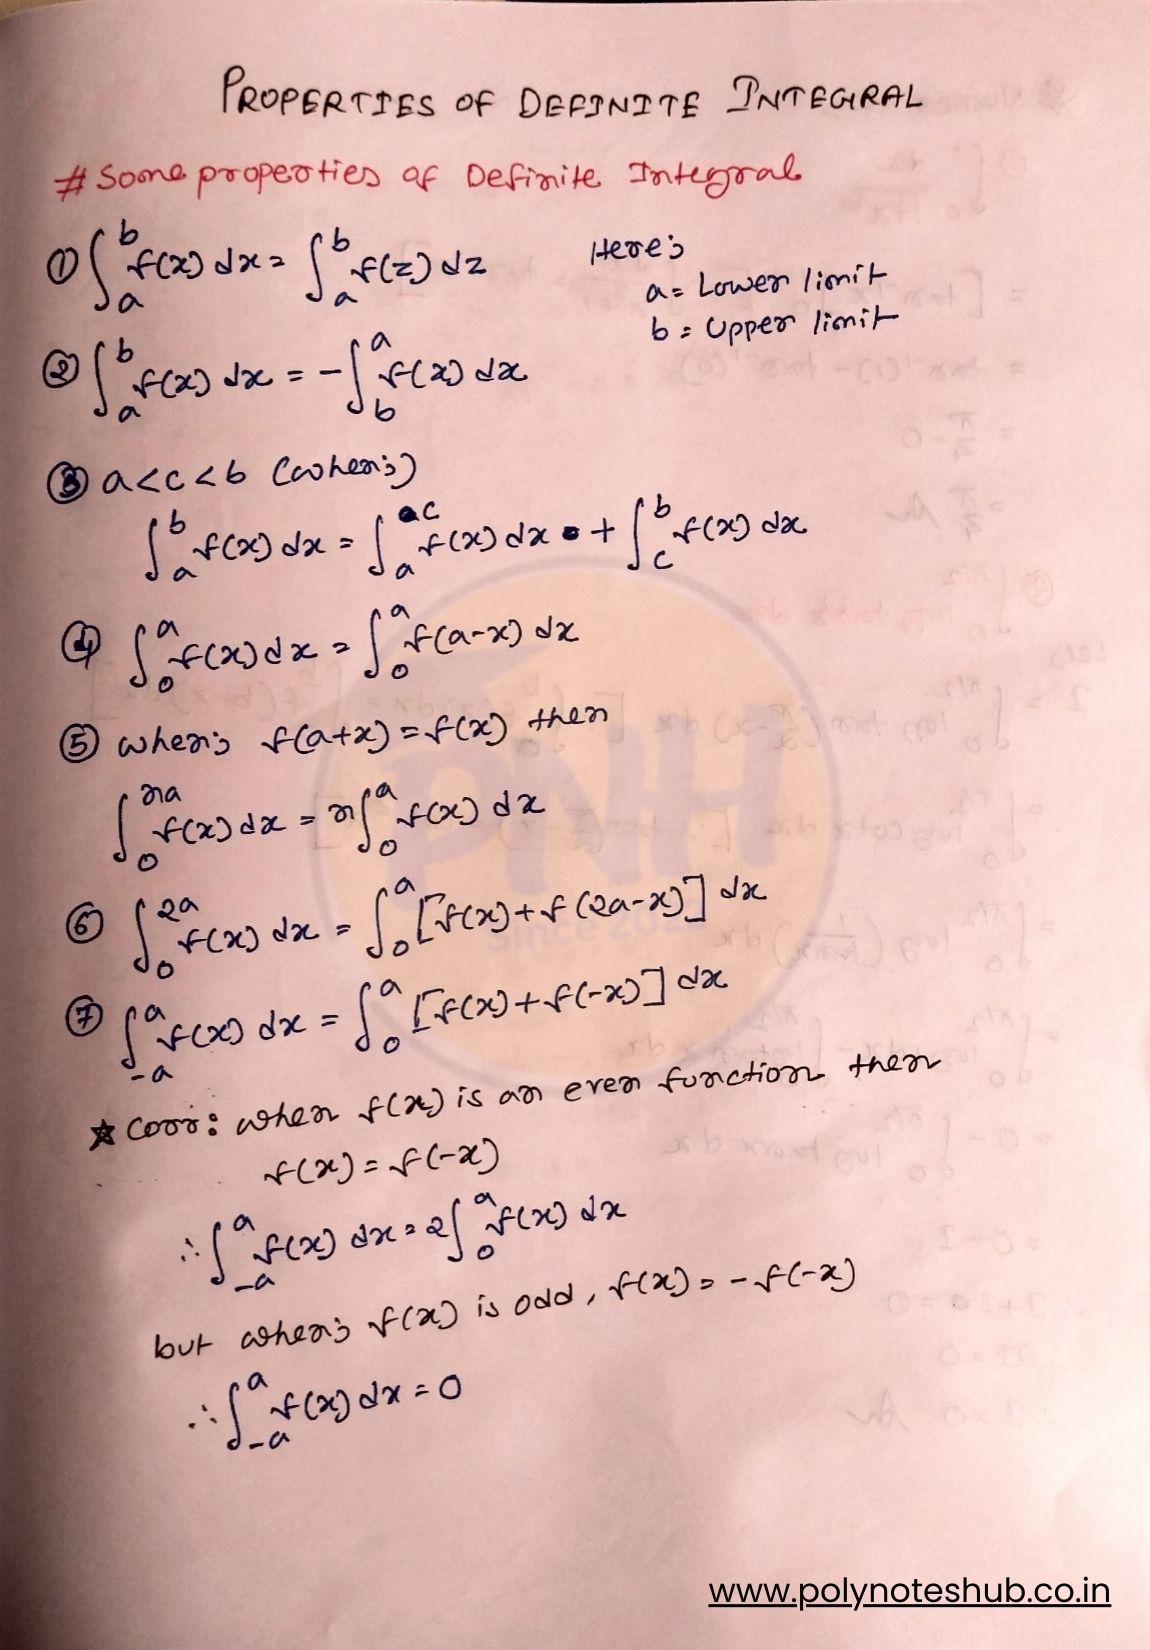 PROPERTIES OF DEFINITE INTEGRAL
# Some properties of Definite Integral
① ∫_a^b f(x) dx = ∫_a^b f(z) dz
Here;
a = Lower limit
b = Upper limit
② ∫_a^b f(x) dx = -∫_b^a f(x) dx
③ a < c < b (when;)
∫_a^b f(x) dx = ∫_a^c f(x) dx + ∫_c^b f(x) dx
④ ∫_0^a f(x) dx = ∫_0^a f(a-x) dx
⑤ when; f(a+x) = f(x) then
∫_0^{na} f(x) dx = n∫_0^a f(x) dx
⑥ ∫_0^{2a} f(x) dx = ∫_0^a [f(x) + f(2a-x)] dx
⑦ ∫_{-a}^a f(x) dx = ∫_0^a [f(x) + f(-x)] dx
☆ Corr: when f(x) is an even function then
f(x) = f(-x)
∴ ∫_{-a}^a f(x) dx = 2∫_0^a f(x) dx
but when; f(x) is odd, f(x) = -f(-x)
∴ ∫_{-a}^a f(x) dx = 0
PNH
www.polynoteshub.co.in